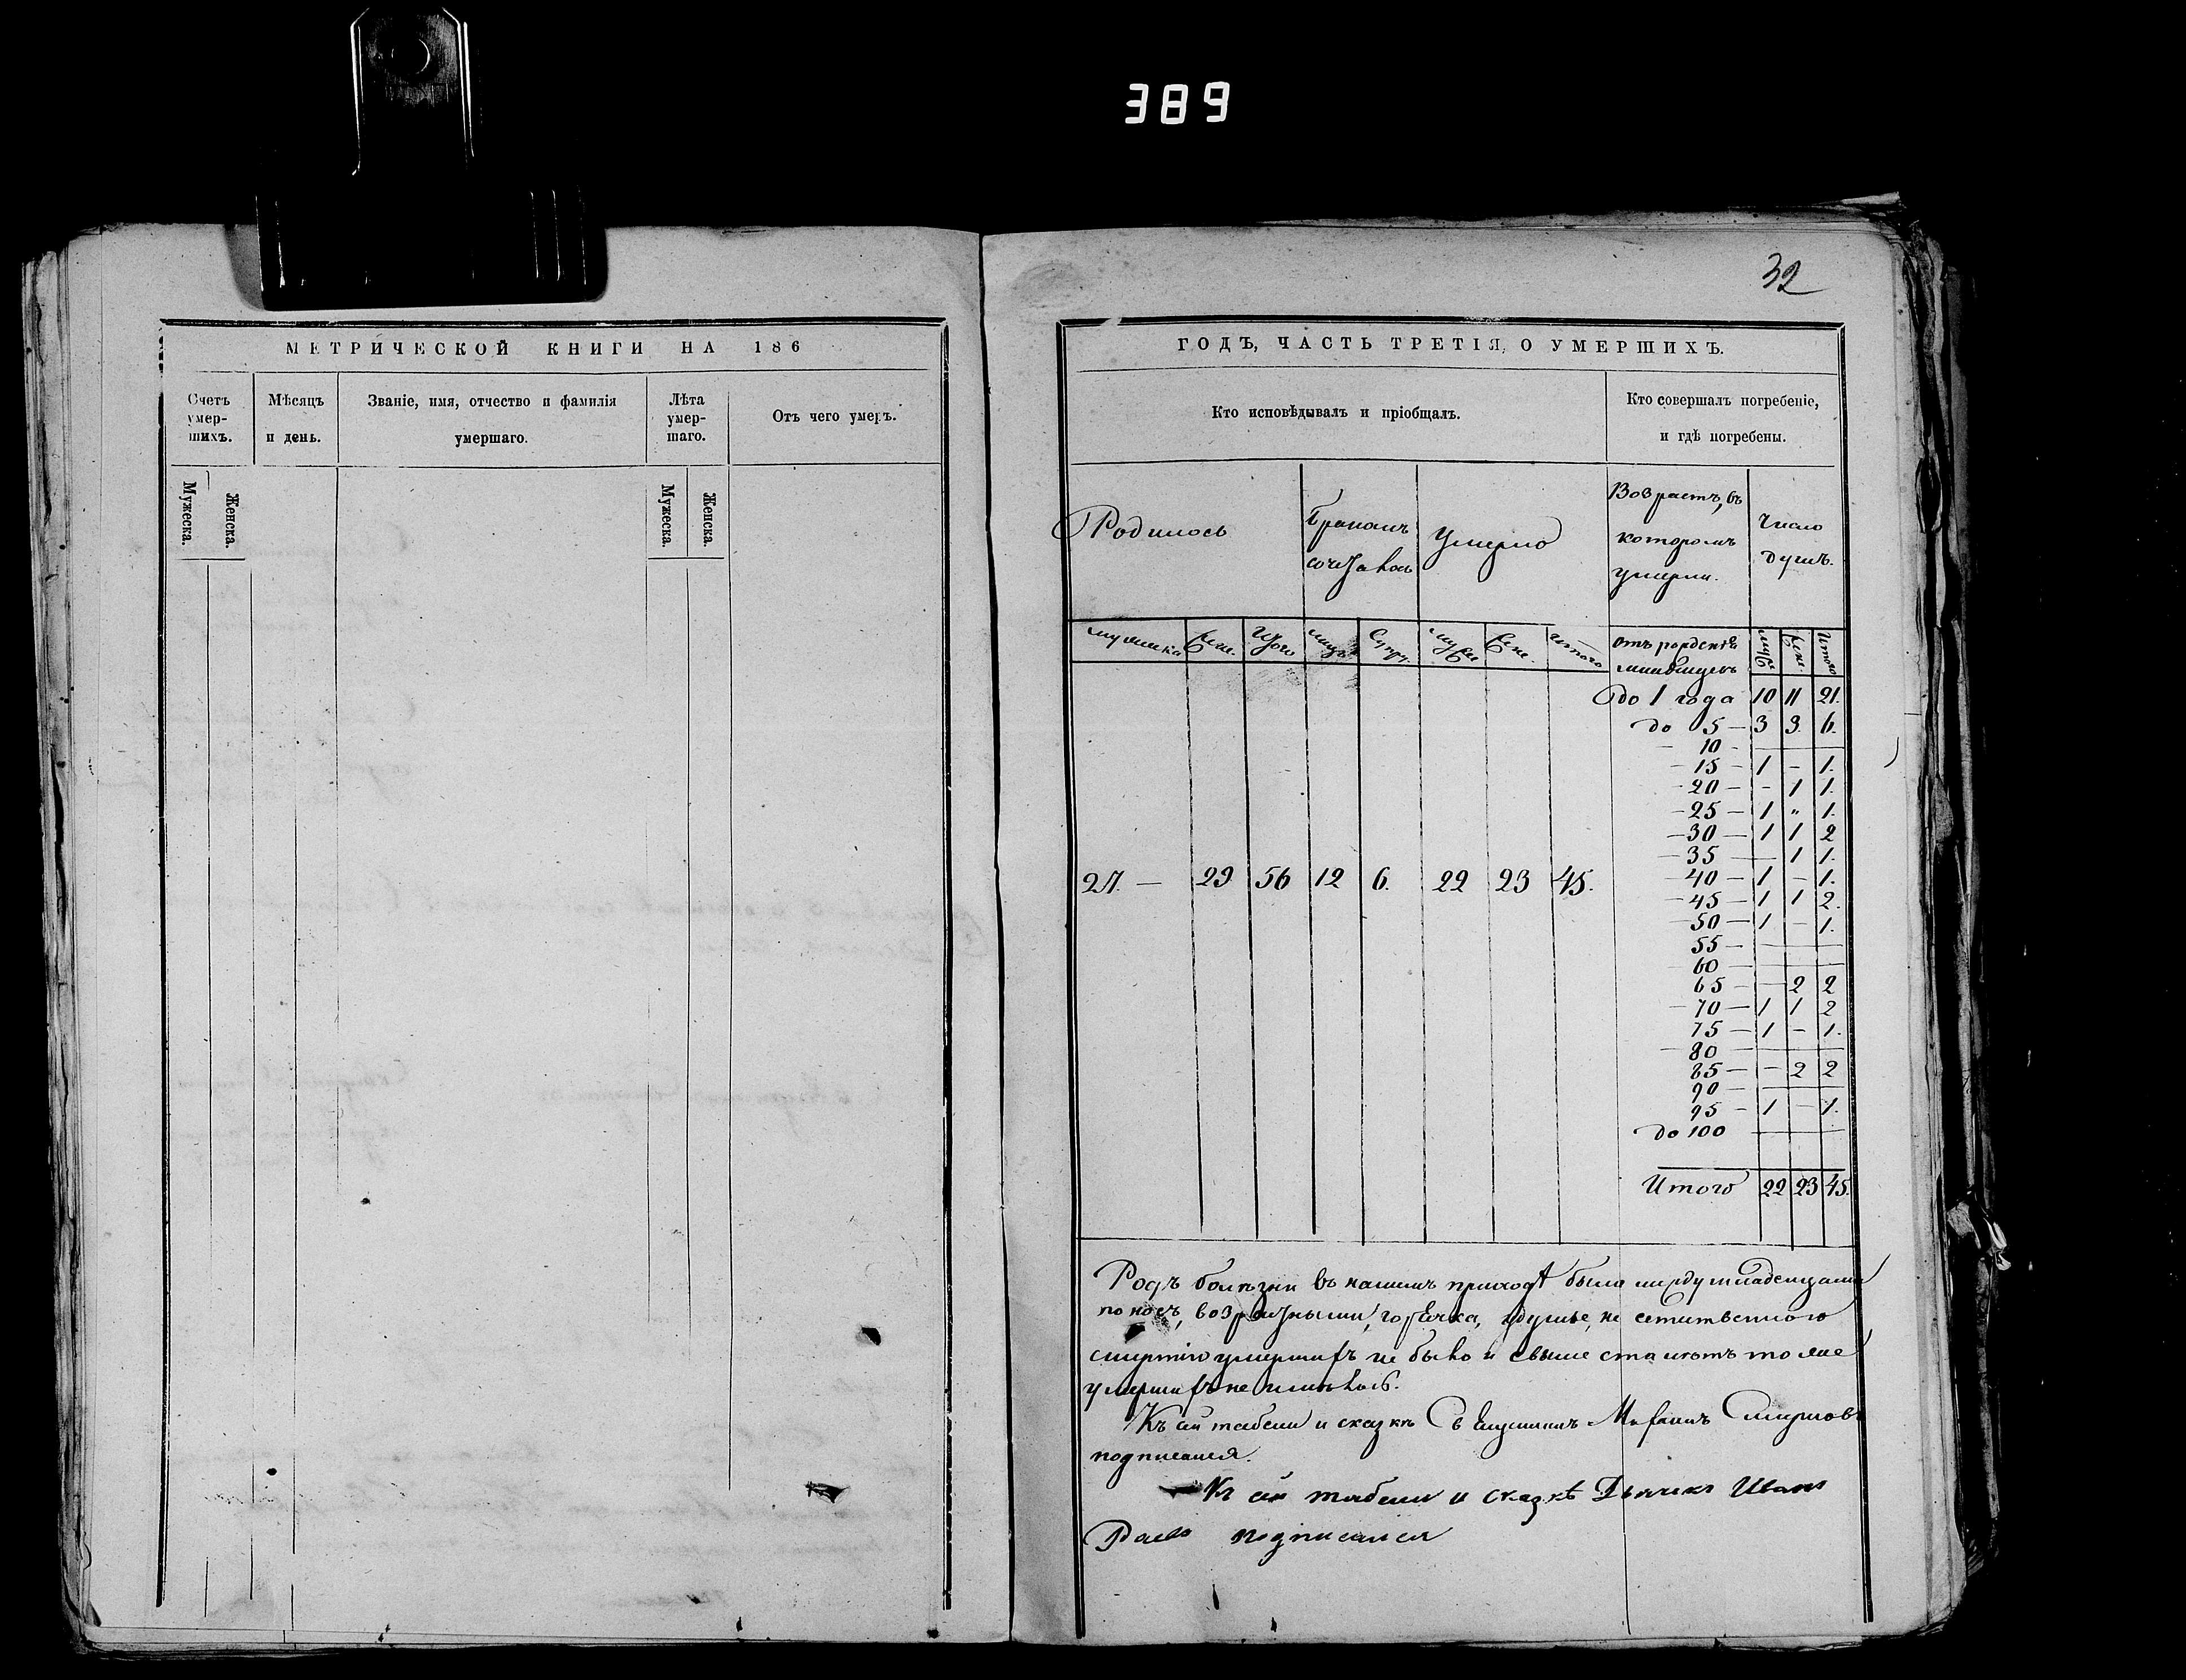 389
32
МЕТРИЧЕСКОЙ КНИГИ НА 186
Счетъ умер-шихъ.
Мѣсяцъ и день.
Званіе, имя, отчество и фамилія умершаго.
Лѣта умер-шаго.
Отъ чего умеръ.
Мужеска.
Женска.
Мужеска.
Женска.
ГОДЪ, ЧАСТЬ ТРЕТІЯ, О УМЕРШИХЪ.
Кто исповѣдывалъ и пріобщалъ.
Кто совершалъ погребеніе,
и гдѣ погребены.
Родилось
Бракомъ
сочеталось
Умерло
Возрастъ, въ
которомъ
умерли.
Число
душъ.
мужеска
Жен.
Итого
лицъ
Супру.
муж
Жен.
Итого
отъ рожденія
младенцевъ
муж
Жен.
Итого
до 1 года 10 11 21.
до 5 — 3 3. 6.
— 10 —
— 15 — 1 — 1.
— 20 — — 1 1.
— 25 — 1 „ 1.
— 30 — 1 1 2
— 35 — 1 1.
27. — 29 56 12 6. 22 23 45.
— 40 — 1 — 1.
— 45 — 1 1 2.
— 50 — 1 — 1.
55 —
60 —
65 — — 2 2
— 70 — 1 1 2
75 — 1 — 1.
— 80 —
85 — — 2 2
90 —
95 — 1 — 1.
до 100
Итого 22 23 45.
Родъ болѣзни въ нашемъ приходѣ была между младенцами
поносъ, возрастными, горячка, удушье, не естественною
смертію умершихъ не было и свыше ста лѣтъ то же
умершихъ не имѣлось.
Къ сей табели и сказкѣ Священникъ Смирновъ
подписался.
Къ сей табели и сказкѣ Дьячекъ Иванъ
подписался